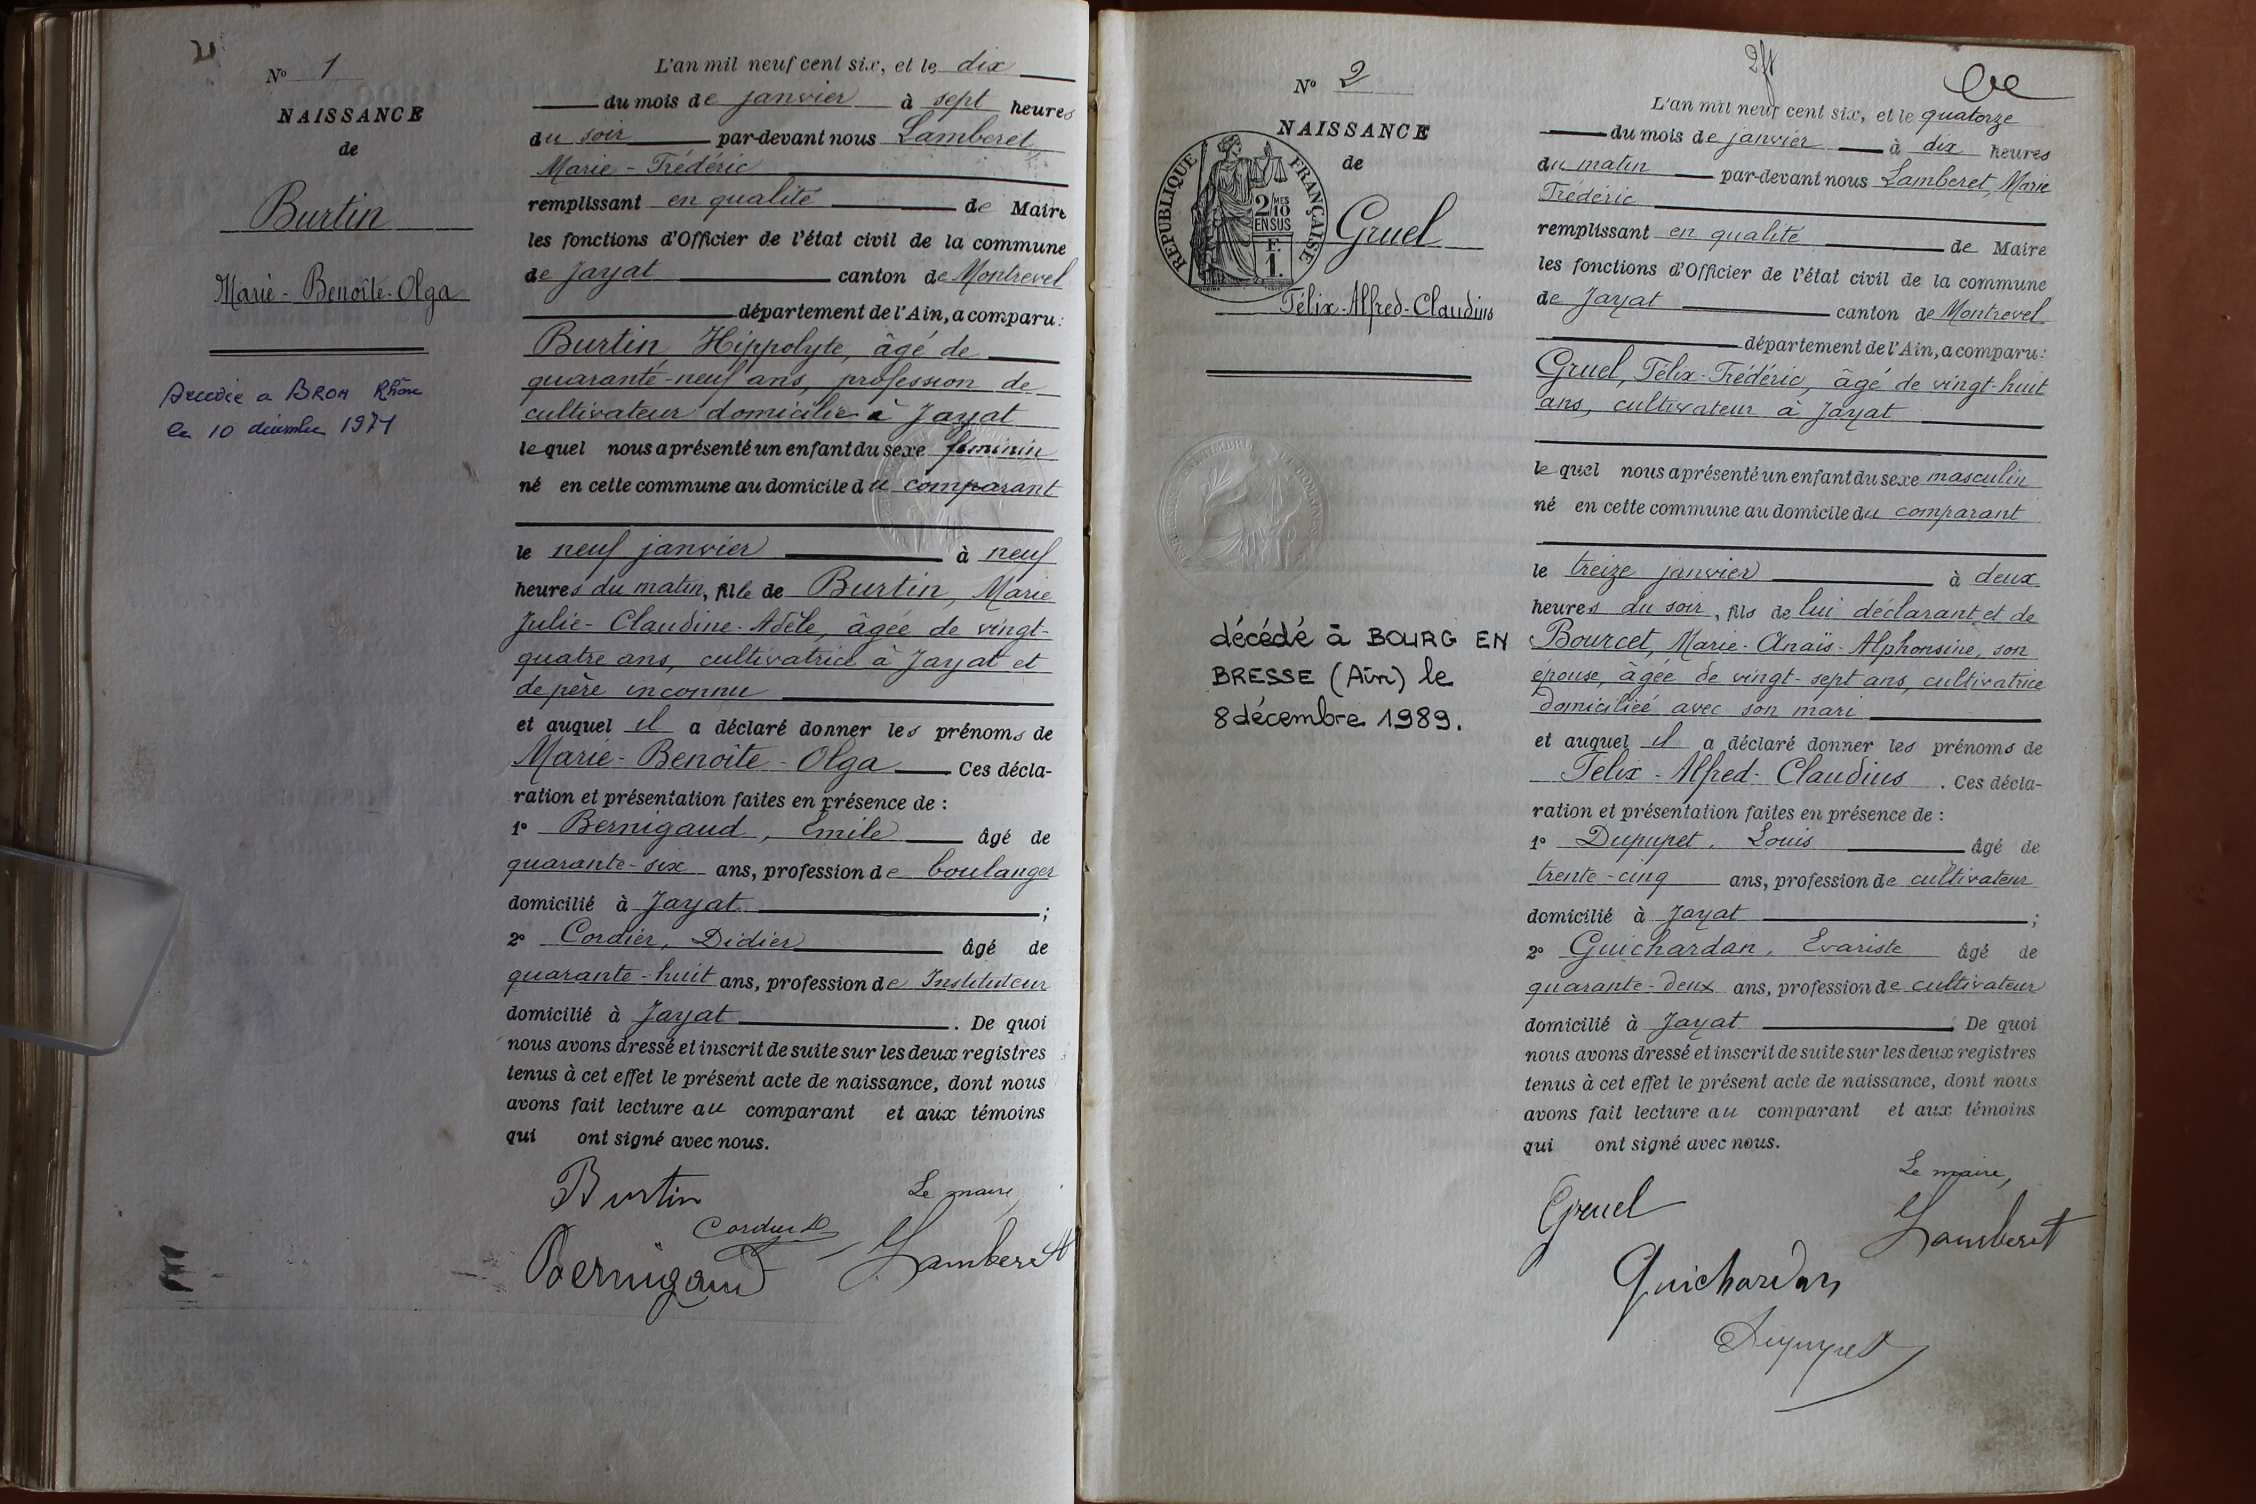 N° 1
NAISSANCE
de
Burtin
Marie-Benoîte-Olga
Décédée a BRON Rhône
le 10 décembre 1974
L'an mil neuf cent six, et le dix
du mois de janvier à sept heures
du soir par-devant nous Lamberet
Marie-Frédéric
remplissant en qualité de Maire
les fonctions d'Officier de l'état civil de la commune
de Jayat canton de Montrevel
département de l'Ain, a comparu :
Burtin Hippolyte, âgé de
quarante-neuf ans, profession de
cultivateur domicilié à Jayat
lequel nous a présenté un enfant du sexe féminin
né en cette commune au domicile du comparant
le neuf janvier à neuf
heures du matin, fille de Burtin, Marie
Julie-Claudine-Adèle, âgée de vingt-
quatre ans, cultivatrice à Jayat et
de père inconnu
et auquel il a déclaré donner les prénoms de
Marie-Benoîte-Olga Ces décla-
ration et présentation faites en présence de :
1° Bernigaud, Emile âgé de
quarante-six ans, profession de boulanger
domicilié à Jayat ;
2° Cordier, Didier âgé de
quarante-huit ans, profession de Instituteur
domicilié à Jayat . De quoi
nous avons dressé et inscrit de suite sur les deux registres
tenus à cet effet le présent acte de naissance, dont nous
avons fait lecture au comparant et aux témoins
qui ont signé avec nous.
Burtin
Le maire,
Cordier D
Bernigaud
Lamberet
N° 2
NAISSANCE
de
RÉPUBLIQUE FRANÇAISE
2/10 MES
EN SUS
F.
1.
Gruel
Félix-Alfred-Claudius
décédé à BOURG EN
BRESSE (Ain) le
8 décembre 1989.
L'an mil neuf cent six, et le quatorze
du mois de janvier à dix heures
du matin par-devant nous Lamberet, Marie
Frédéric
remplissant en qualité de Maire
les fonctions d'Officier de l'état civil de la commune
de Jayat canton de Montrevel
département de l'Ain, a comparu :
Gruel, Félix-Frédéric, âgé de vingt-huit
ans, cultivateur à Jayat
lequel nous a présenté un enfant du sexe masculin
né en cette commune au domicile du comparant
le treize janvier à deux
heures du soir, fils de lui déclarant et de
Bourcet, Marie-Anaïs-Alphonsine, son
épouse, âgée de vingt-sept ans, cultivatrice
domiciliée avec son mari
et auquel il a déclaré donner les prénoms de
Félix-Alfred-Claudius . Ces décla-
ration et présentation faites en présence de :
1° Dupupet, Louis âgé de
trente-cinq ans, profession de cultivateur
domicilié à Jayat ;
2° Guichardan, Evariste âgé de
quarante-deux ans, profession de cultivateur
domicilié à Jayat . De quoi
nous avons dressé et inscrit de suite sur les deux registres
tenus à cet effet le présent acte de naissance, dont nous
avons fait lecture au comparant et aux témoins
qui ont signé avec nous.
Le maire,
Gruel
Lamberet
Guichardan
Dupupet